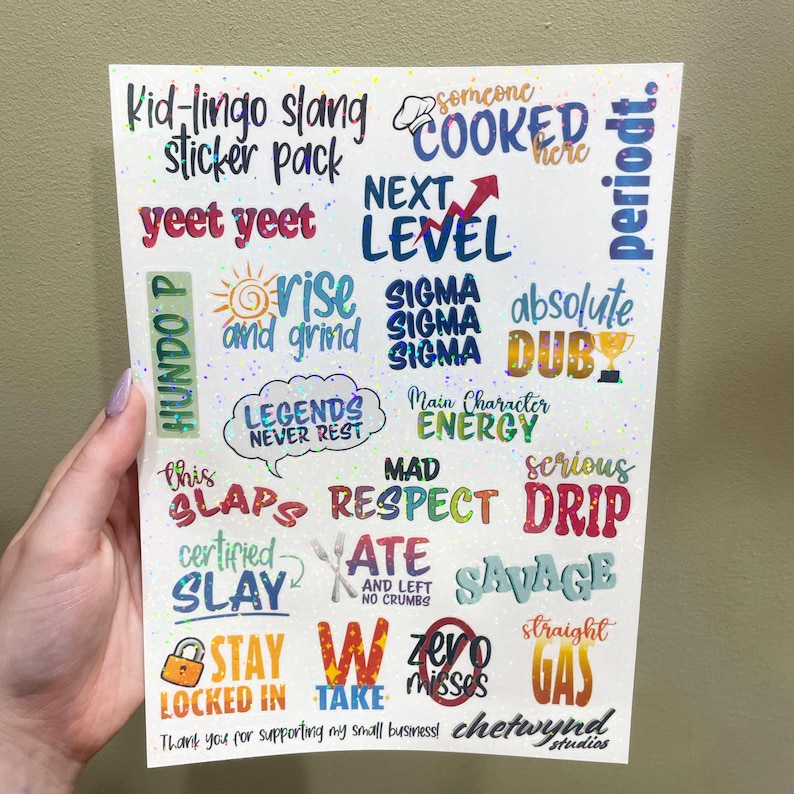 Kid-lingo slang
sticker pack
someone
COOKED
here
periodt.
yeet yeet
NEXT
LEVEL
HUNDO P
rise
and grind
SIGMA
SIGMA
SIGMA
absolute
DUB
LEGENDS
NEVER REST
Main Character
ENERGY
this
SLAPS
MAD
RESPECT
serious
DRIP
certified
SLAY
ATE
AND LEFT
NO CRUMBS
SAVAGE
STAY
LOCKED IN
W
TAKE
zero
misses
straight
GAS
Thank you for supporting my small business!
chetwynd
studios